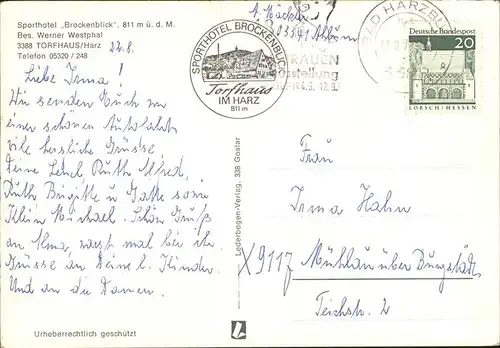 Sporthotel „Brockenblick", 811 m ü. d. M.
Bes. Werner Westphal
3388 TORFHAUS/Harz
Telefon 05320 / 248
22.8.
Liebe Irma!
Wir senden Euch von
einer schönen Autofahrt
viele herzliche Grüsse
Deine Ruth
Ruth Brigitte u Gatte sowie
Klein Michael. Schön Gruß
an Alma, sagst mal bei ihr
Grüsse an Deine l. Kinder.
Und an die Damen.
Urheberrechtlich geschützt
Lederbogen-Verlag, 338 Goslar
SPORTHOTEL BROCKENBLICK
Torfhaus
IM HARZ
811 m
BAD HARZB
Deutsche Bundespost
20
LORSCH/HESSEN
Frau
Irma Hahn
X9117 Mühlau über Burgstädt
Teichstr. 2